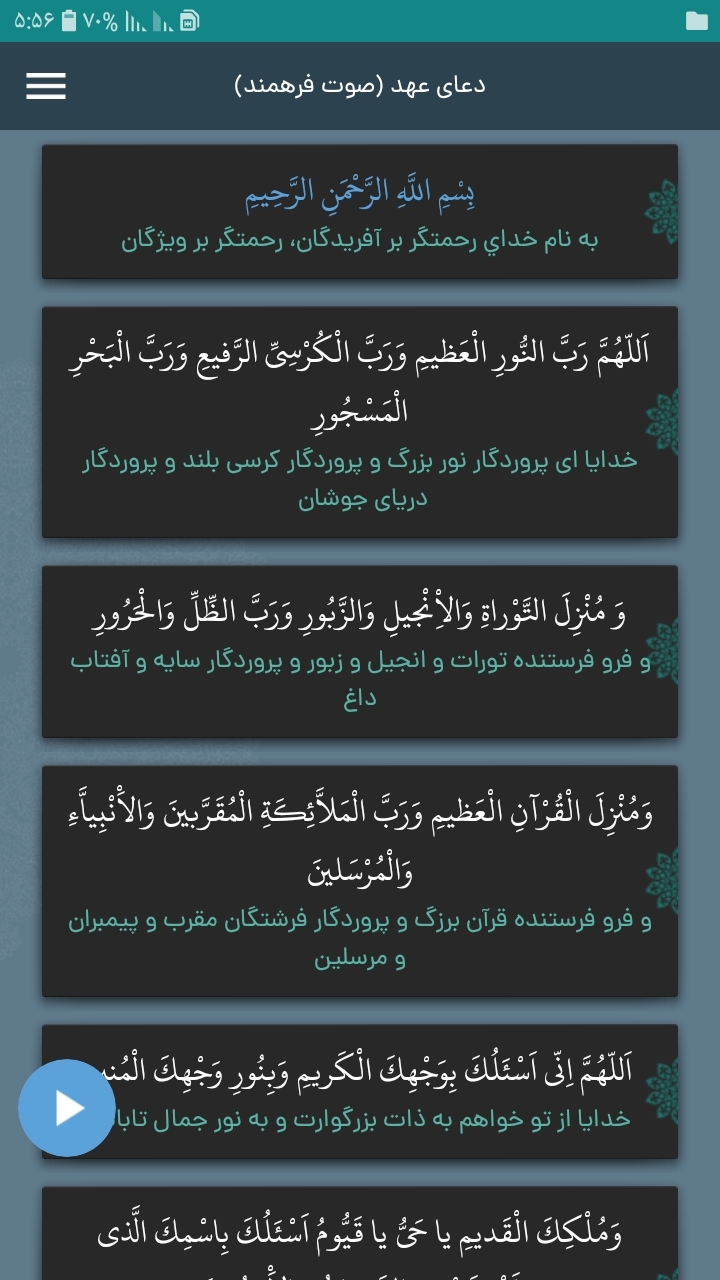 ۵:۵۶ ۷۰%
دعای عهد (صوت فرهمند)
بِسْمِ اللَّهِ الرَّحْمَنِ الرَّحِيمِ
به نام خداي رحمتگر بر آفريدگان، رحمتگر بر ويژگان
اَللّهُمَّ رَبَّ النُّورِ الْعَظيمِ وَرَبَّ الْكُرْسِىِّ الرَّفيعِ وَرَبَّ الْبَحْرِ
الْمَسْجُورِ
خدایا ای پروردگار نور بزرگ و پروردگار کرسی بلند و پروردگار
دریای جوشان
وَ مُنْزِلَ التَّوْراةِ وَالاِْنْجيلِ وَالزَّبُورِ وَرَبَّ الظِّلِّ وَالْحَرُورِ
و فرو فرستنده تورات و انجیل و زبور و پروردگار سایه و آفتاب
داغ
وَمُنْزِلَ الْقُرْآنِ الْعَظيمِ وَرَبَّ الْمَلاَّئِكَةِ الْمُقَرَّبينَ وَالاَْنْبِياَّءِ
وَالْمُرْسَلينَ
و فرو فرستنده قرآن برزگ و پروردگار فرشتگان مقرب و پیمبران
و مرسلین
اَللّهُمَّ اِنّى اَسْئَلُكَ بِوَجْهِكَ الْكَريمِ وَبِنُورِ وَجْهِكَ
خدایا از تو خواهم به ذات بزرگوارت و به نور جمال
وَمُلْكِكَ الْقَديمِ يا حَىُّ يا قَيُّومُ اَسْئَلُكَ بِاسْمِكَ الَّذى